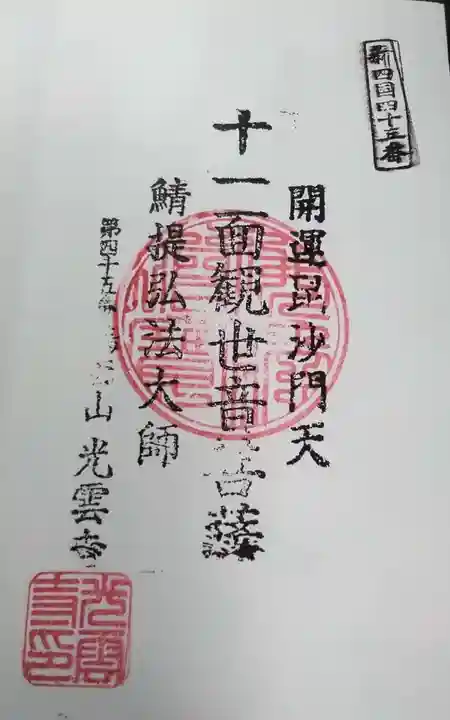 新四国四十五番
開運毘沙門天
十一面観世音菩薩
鯖提弘法大師
第四十五
山光雲寺